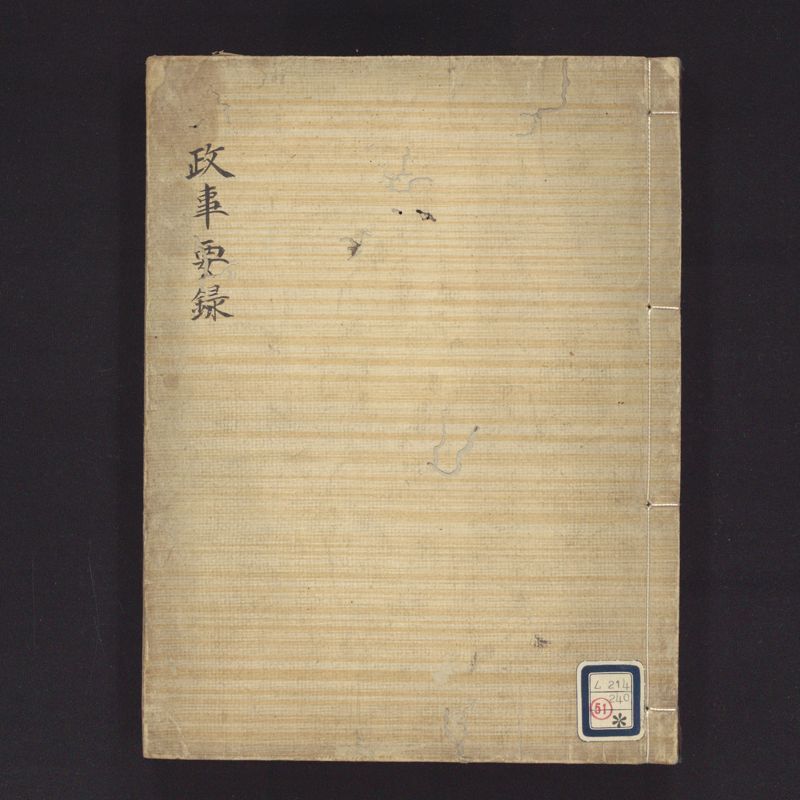 政事要録
L 214
240
51
*